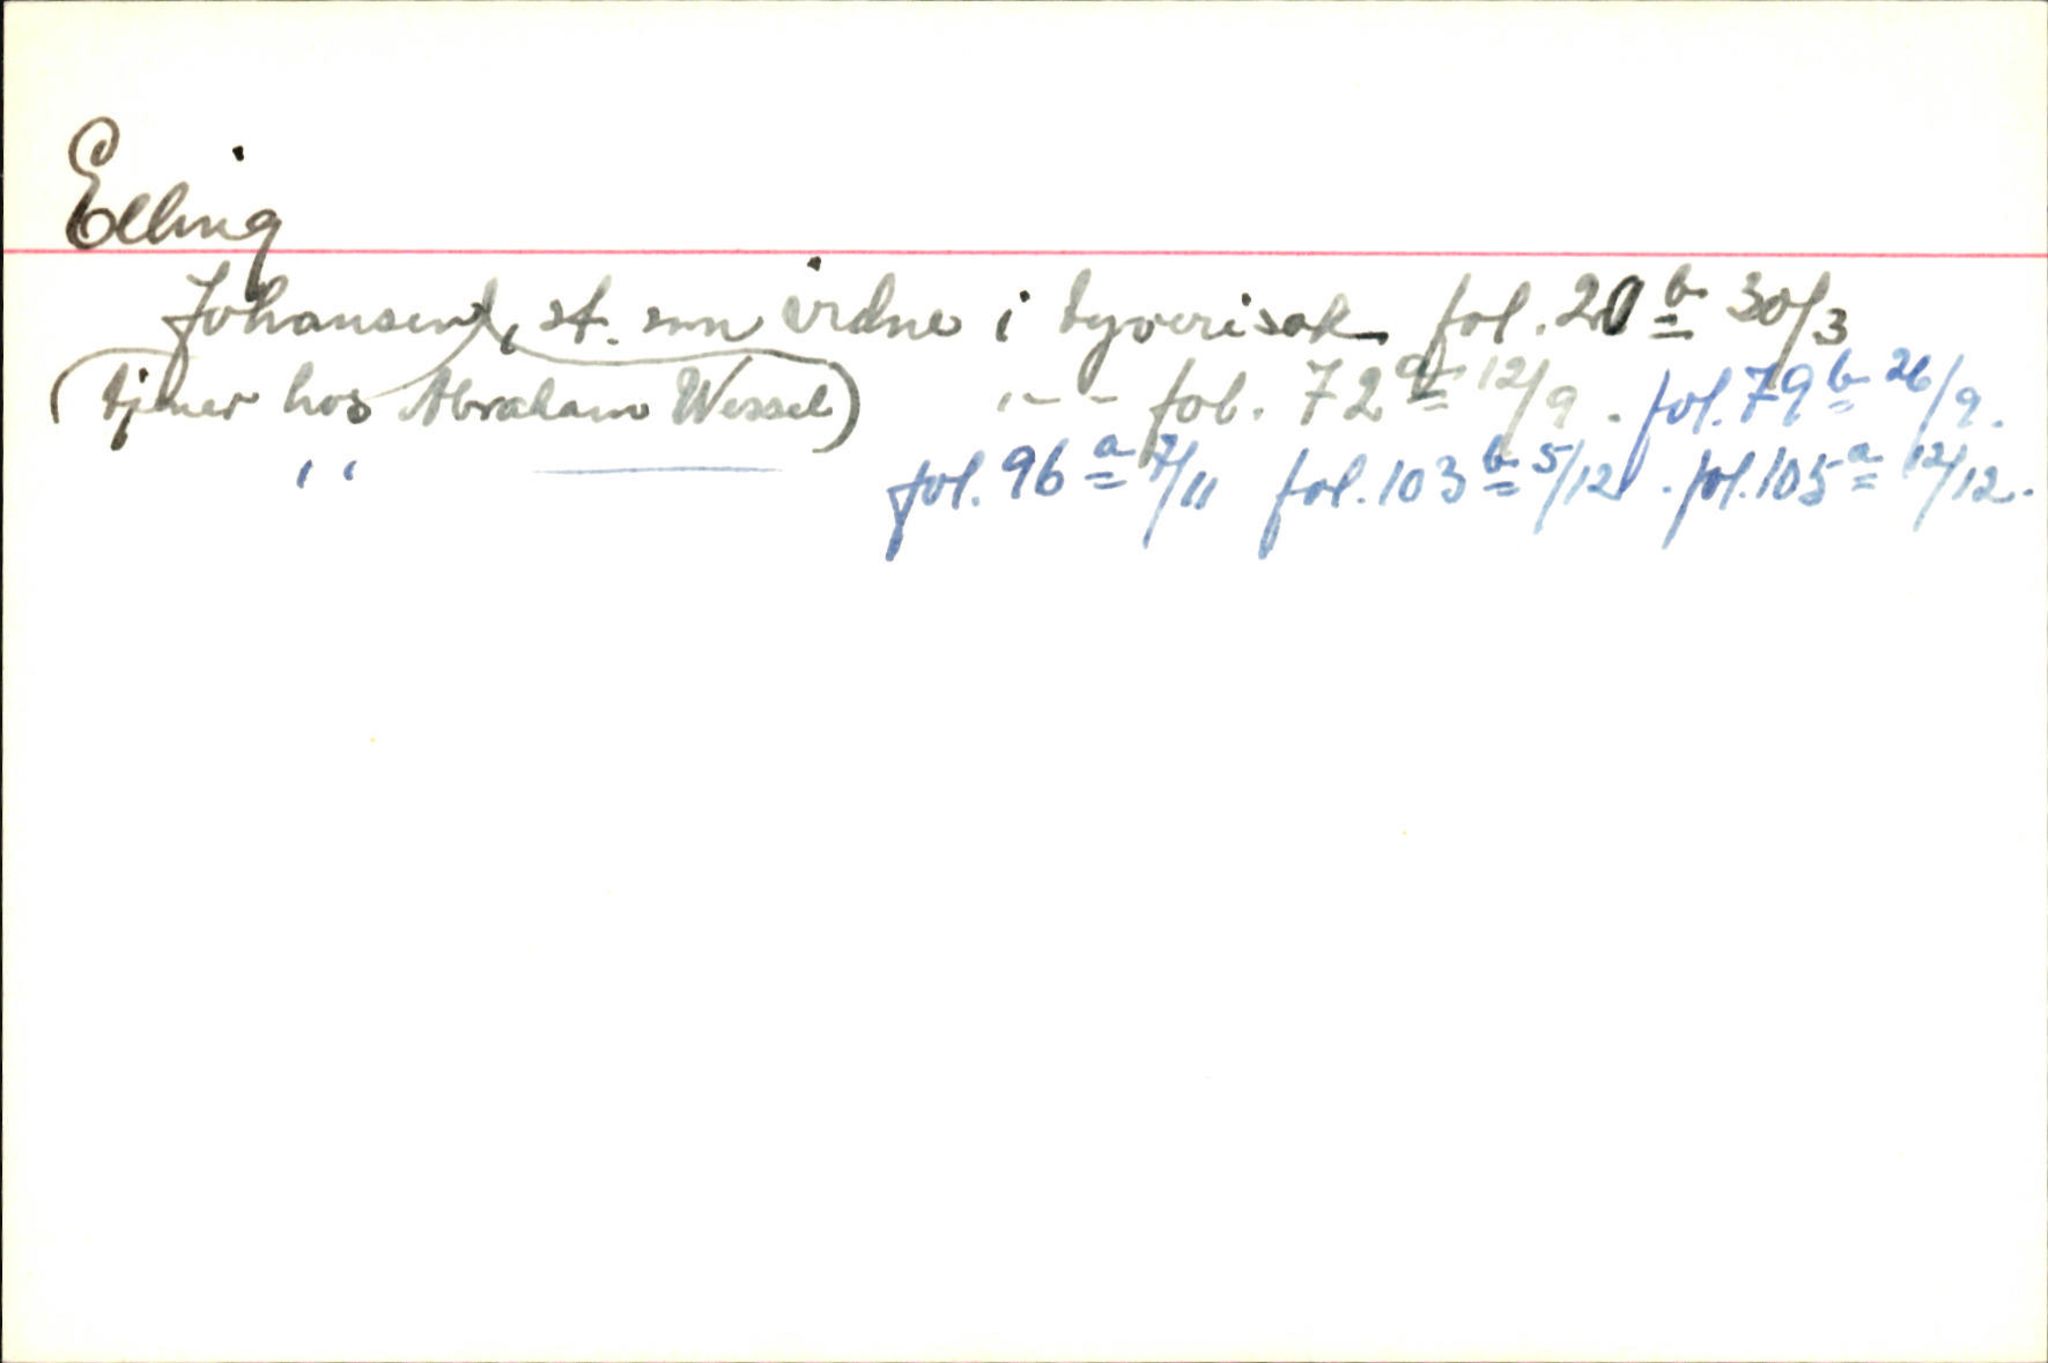 Elling
Johansen, st. som vidne i tyverisak fol. 20 b 30/3
(tjener hos Abraham Wessel) " - - fol. 72 a 12/9. fol. 79 b 26/9.
" fol. 96 a 7/11 fol. 103 b 5/12. fol. 105 a 12/12.